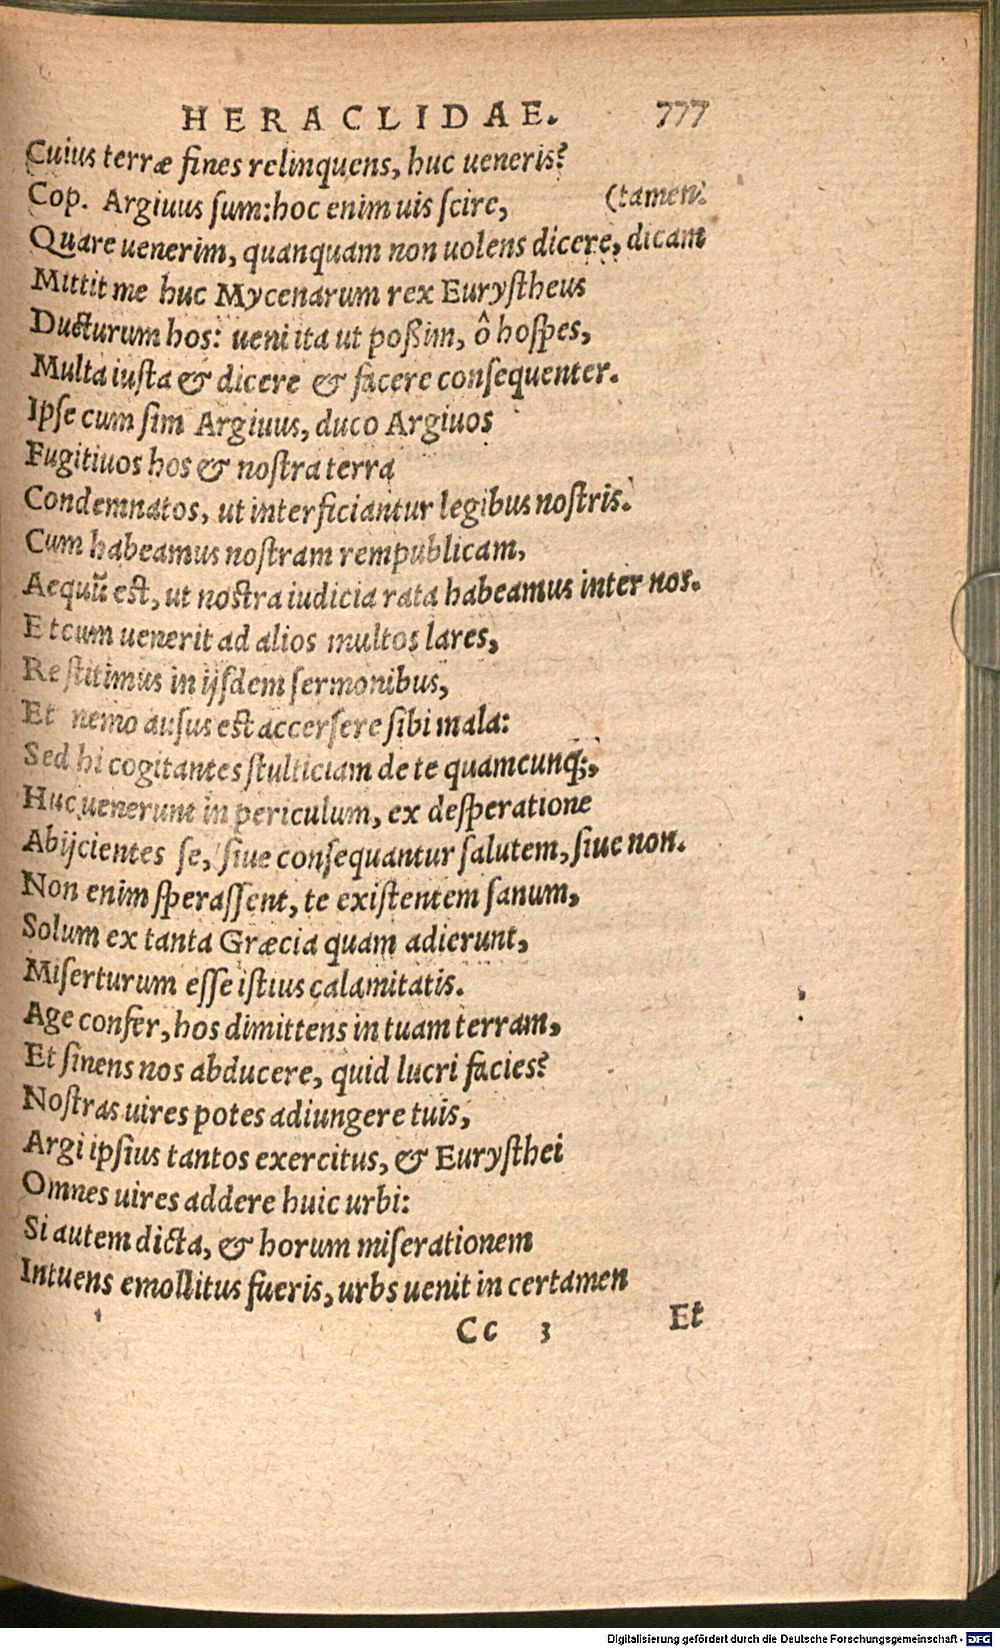 HERACLIDAE. 777
Cuius terræ fines relinquens, huc ueneris?
Cop. Argiuus sum: hoc enim uis scire, (tamen.
Quare uenerim, quanquam non uolens dicere, dicam
Mittit me huc Mycenarum rex Eurystheus
Ducturum hos: ueni ita ut poßim, ô hospes,
Multa iusta & dicere & facere consequenter.
Ipse cum sim Argiuus, duco Argiuos
Fugitiuos hos & nostra terra
Condemnatos, ut interficiantur legibus nostris.
Cum habeamus nostram rempublicam,
Aequũ est, ut nostra iudicia rata habeamus inter nos.
Et cum uenerit ad alios multos lares,
Restitimus in ijsdem sermonibus,
Et nemo ausus est accersere sibi mala:
Sed hi cogitantes stulticiam de te quamcunq;,
Huc uenerunt in periculum, ex desperatione
Abijcientes se, siue consequantur salutem, siue non.
Non enim sperassent, te existentem sanum,
Solum ex tanta Græcia quam adierunt,
Miserturum esse istius calamitatis.
Age confer, hos dimittens in tuam terram,
Et sinens nos abducere, quid lucri facies?
Nostras uires potes adiungere tuis,
Argi ipsius tantos exercitus, & Eurysthei
Omnes uires addere huic urbi:
Si autem dicta, & horum miserationem
Intuens emollitus fueris, urbs uenit in certamen
Cc 3 Et
Digitalisierung gefördert durch die Deutsche Forschungsgemeinschaft - DFG